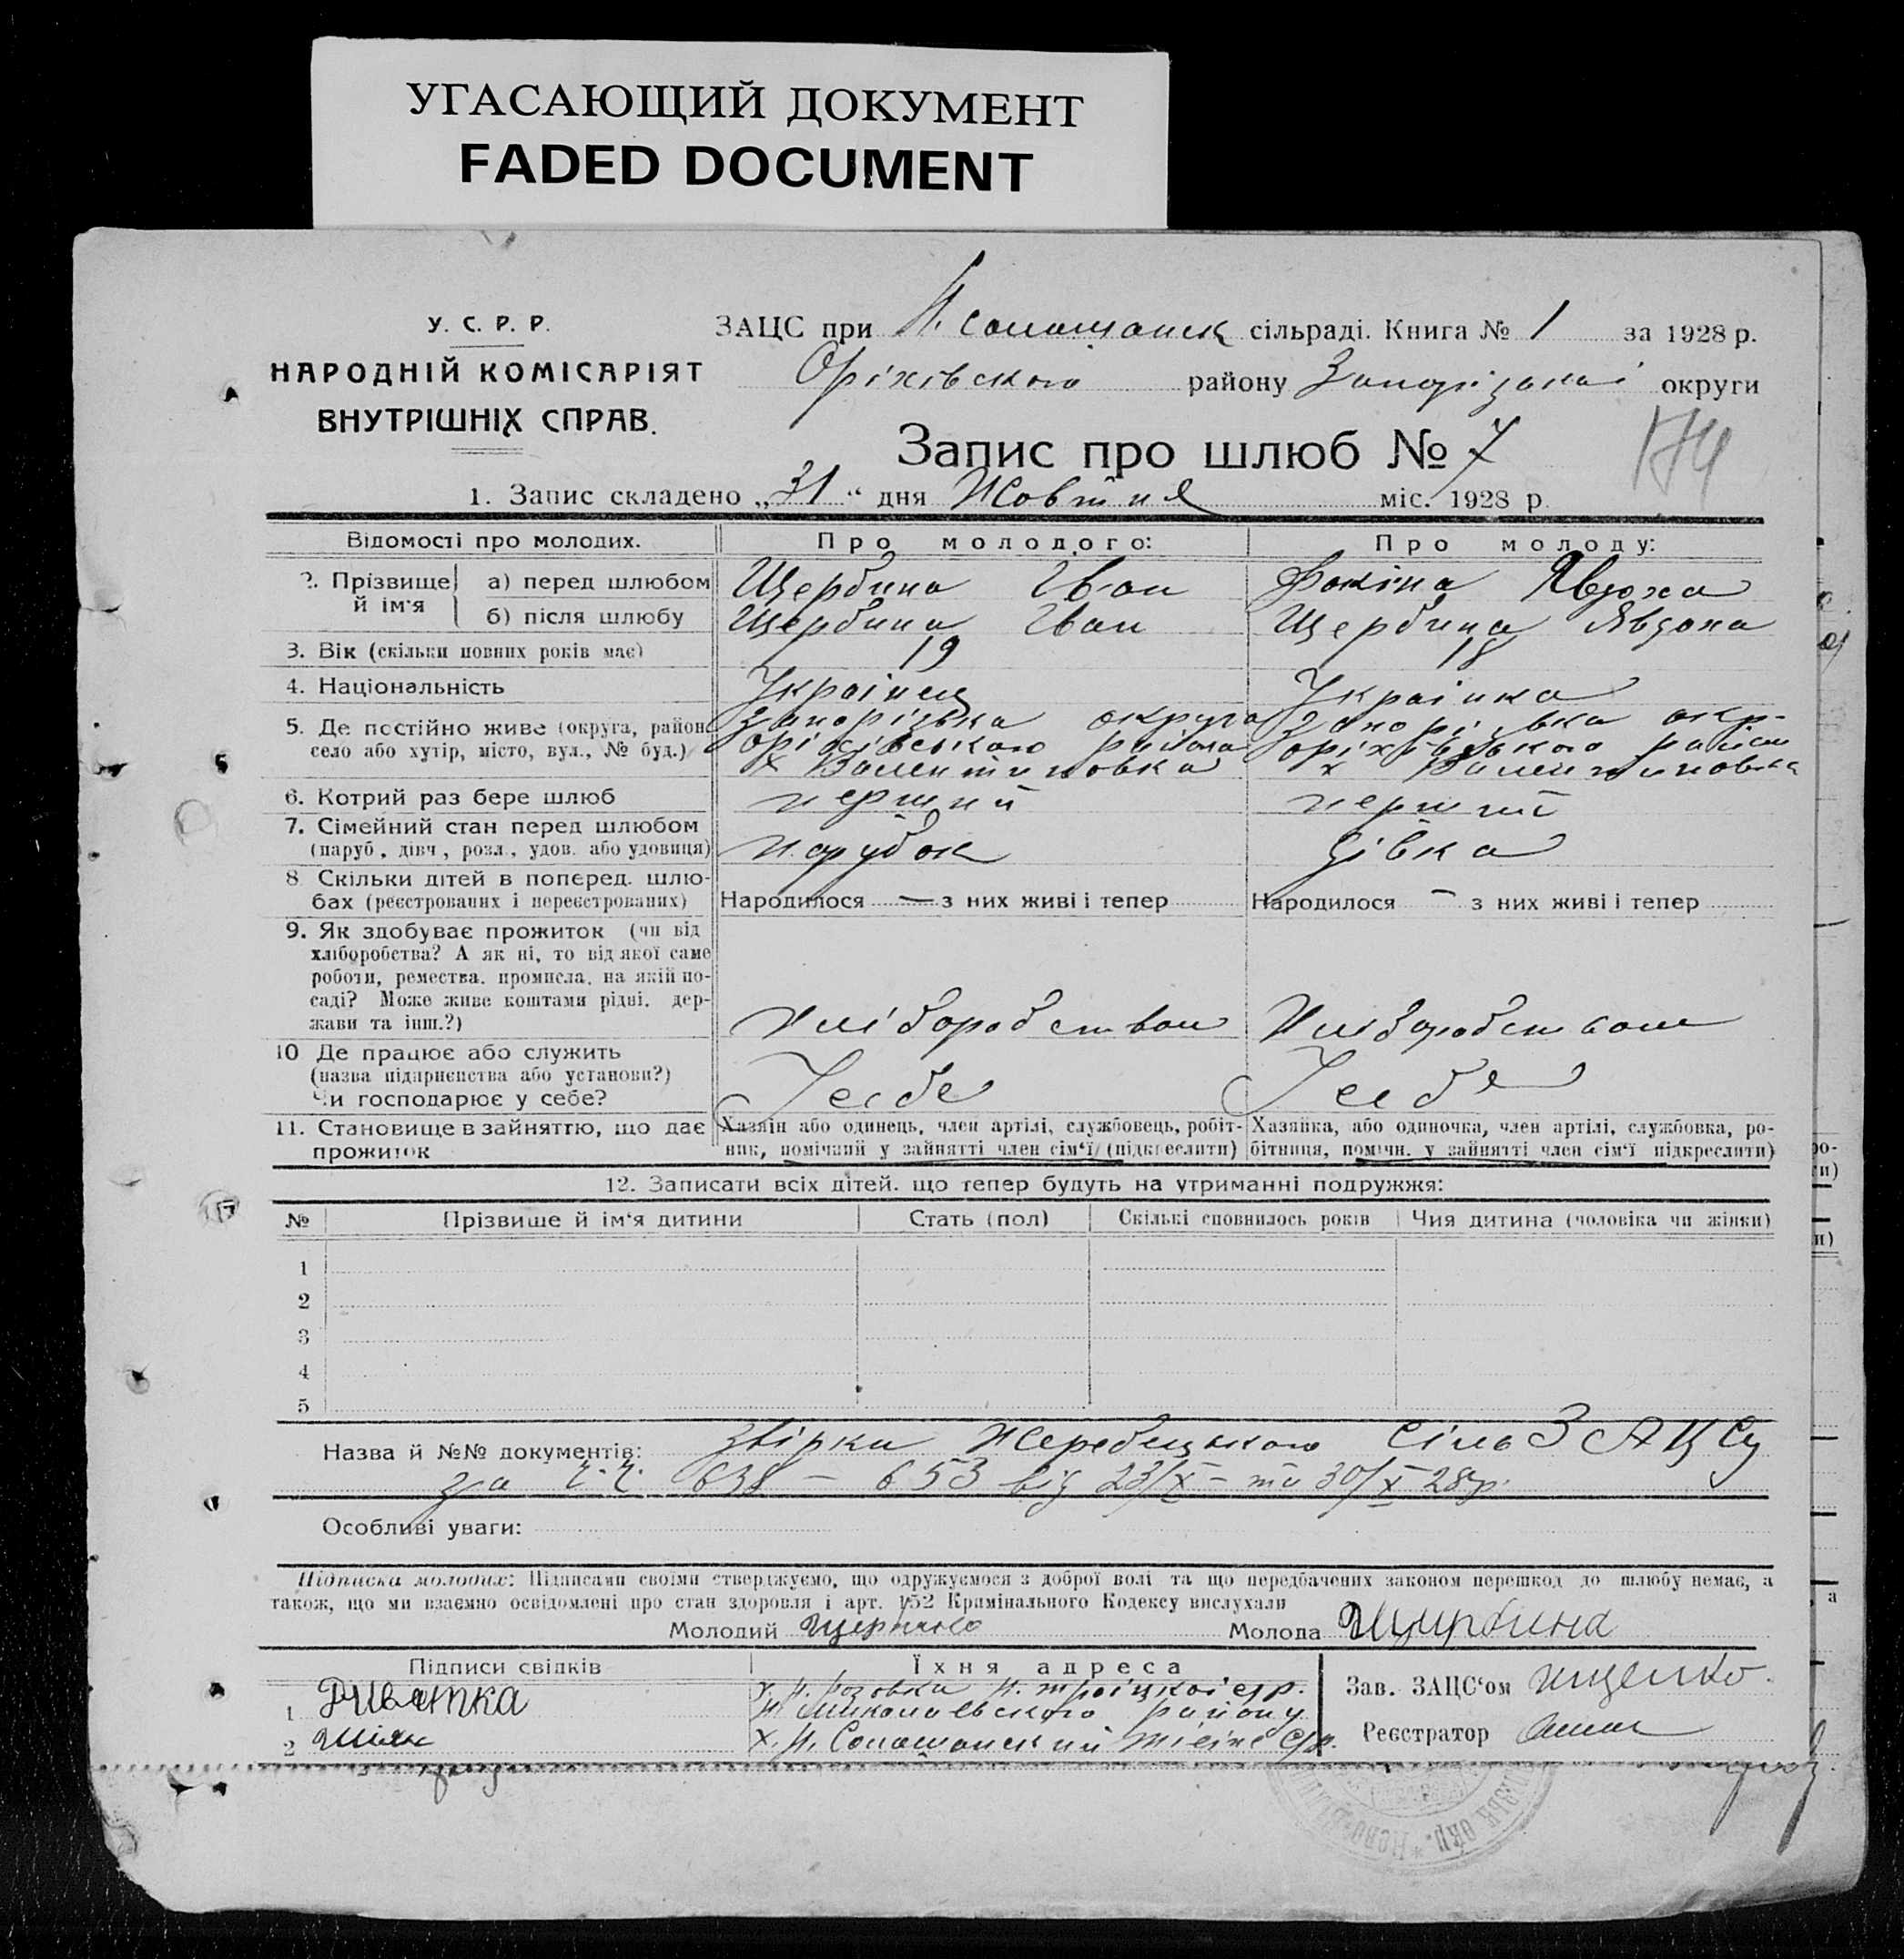 УГАСАЮЩИЙ ДОКУМЕНТ
FADED DOCUMENT
У. С. Р. Р.
НАРОДНІЙ КОМІСАРІЯТ
ВНУТРІШНІХ СПРАВ.
ЗАЦС при Н. сільраді. Книга № 1 за 1928 р.
Оріхівского району округи
Запис про шлюб № 7
174
1. Запис складено „31“ дня Жовтня міс. 1928 р.
Відомості про молодих. Про молодого: Про молоду:
2. Прізвище й ім‘я
а) перед шлюбом Щербина Іван Фокіна Явдоха
б) після шлюбу Щербина Іван Щербина Явдоха
3. Вік (скільки повних років має) 19 18
4. Національність Украінец Украінка
5. Де постійно живе (округа, район, село або хутір, місто, вул., № буд.)
Запорізька округа Запорізька окр.
Оріхівського района Оріхівського район
х Валентиновка х Валентиновка
6. Котрий раз бере шлюб перший перший
7. Сімейний стан перед шлюбом
(паруб, дівч, розл, удов. або удовиця) парубок дівка
8 Скільки дітей в поперед. шлю-
бах (реєстрованих і нереєстрованих) Народилося — з них живі і тепер Народилося — з них живі і тепер
9. Як здобуває прожиток (чи від
хліборобства? А як ні, то від якої саме
роботи, ремества, промисла, на якій по-
саді? Може живе коштами рідні, дер-
жави та інш.?) Хліборобством Хліборобством
10 Де працює або служить
(назва підприєпства або установи?)
Чи господарює у себе? У себе У себе
11. Становище в зайняттю, що дає
прожиток
Хазяїн або одинець, член артілі, службовець, робіт-
ник, помічний у зайнятті член сім‘ї (підкреслити)
Хазяйка, або одиночка, член артілі, службовка, ро-
бітниця, помічн. у зайнятті член сім‘ї підкреслити)
12. Записати всіх дітей. що тепер будуть на утриманні подружжя:
№ Прізвише й ім‘я дитини Стать (пол) Скількі сповнилось років Чия дитина (чоловіка чи жінки)
1
2
3
4
5
Назва й №№ документів: Звірки Жеребецького Сіль ЗАЦСу
за ч.ч. 638 — 653 від 23/X — та 30/X 28р.
Особливі уваги:
Підписка молодих: Підписами своїми стверджуємо, що одружуємося з доброї волі та що передбачених законом перешкод до шлюбу немає, а
також, що ми взаємно освідомлені про стан здоровля і арт. 152 Крамінального Кодексу вислухали
Молодий Молода Щурбина
Підписи свідків Їхня адреса
1
Миколаєвського району
2 х. Н.
Зав. ЗАЦС‘ом Ищенко
Реєстратор